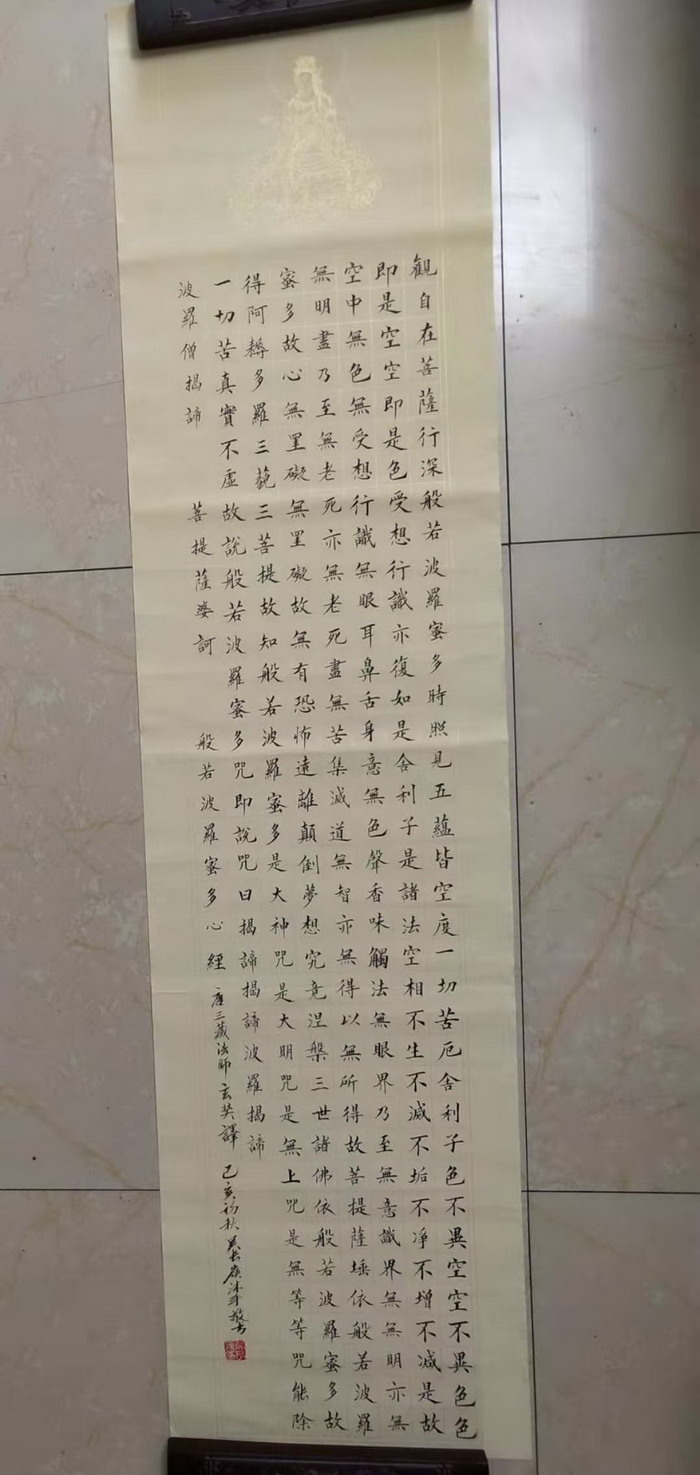 觀自在菩薩行深般若波羅蜜多時照見五蘊皆空度一切苦厄舍利子色不異空空不異色色
即是空空即是色受想行識亦復如是舍利子是諸法空相不生不滅不垢不凈不增不减是故
空中無色無受想行識無眼耳鼻舌身意無色聲香味觸法無眼界乃至無意識界無無明亦無
無明盡乃至無老死亦無老死盡無苦集滅道無智亦無得以無所得故菩提薩埵依般若波羅
蜜多故心無罣礙無罣礙故無有恐怖遠離顛倒夢想究竟涅槃三世諸佛依般若波羅蜜多故
得阿耨多羅三藐三菩提故知般若波羅蜜多是大神咒是大明咒是無上咒是無等等咒能除
一切苦真實不虛故說般若波羅蜜多咒即說咒曰揭諦揭諦波羅揭諦
波羅僧揭諦 菩提薩婆訶 般若波羅蜜多心經 唐三藏法師玄奘譯 己亥初秋 沐手敬書